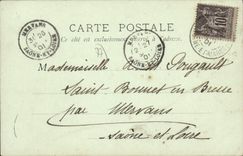 CARTE POSTALE
Ce côté est exclusivement réservé à l'adresse
MERVANS
SAÔNE-ET-LOIRE
MERVANS
10
Mademoiselle A Pougault
Saint Bonnet en Bresse
par Mervans
Saône et Loire